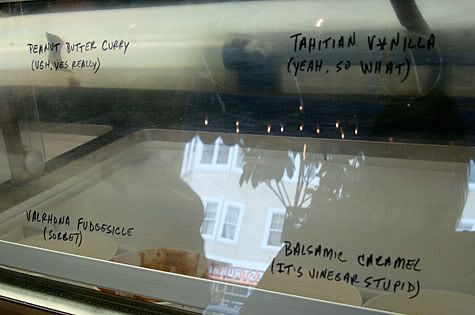 PEANUT BUTTER CURRY
(UGH, YES REALLY)
TAHITIAN V*NILLA
(YEAH, SO WHAT)
VALRHONA FUDGESICLE
(SORBET)
BALSAMIC CARAMEL
(IT'S VINEGAR STUPID)